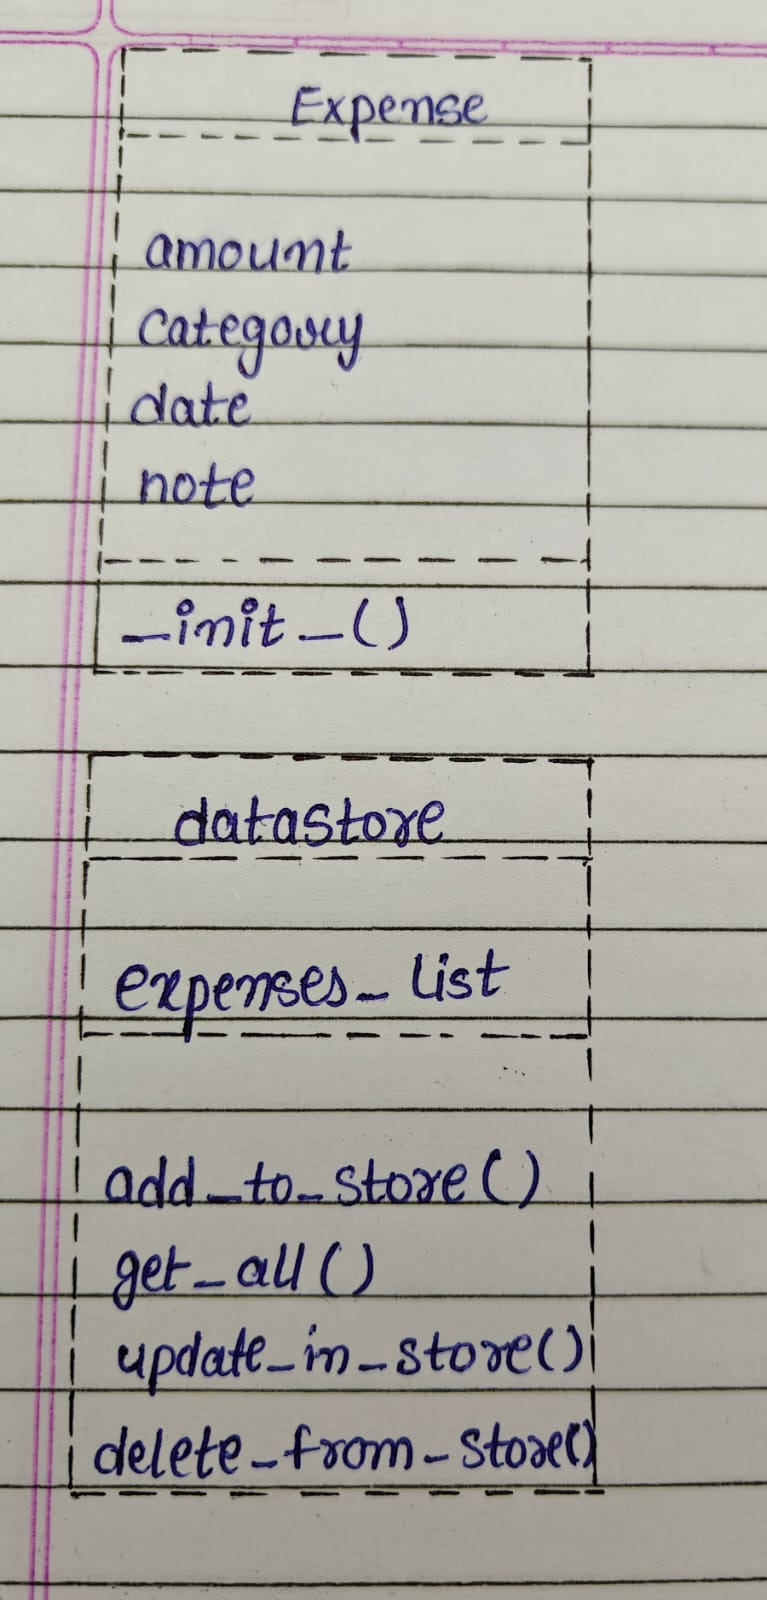 Expense
amount
category
date
note
_init_()
datastore
expenses_list
add_to_store()
get_all()
update_in_store()
delete_from_store()